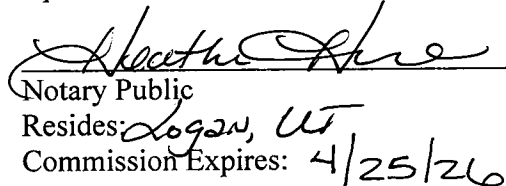 Heathe
Notary Public
Resides: Logan, UT
Commission Expires: 4/25/26